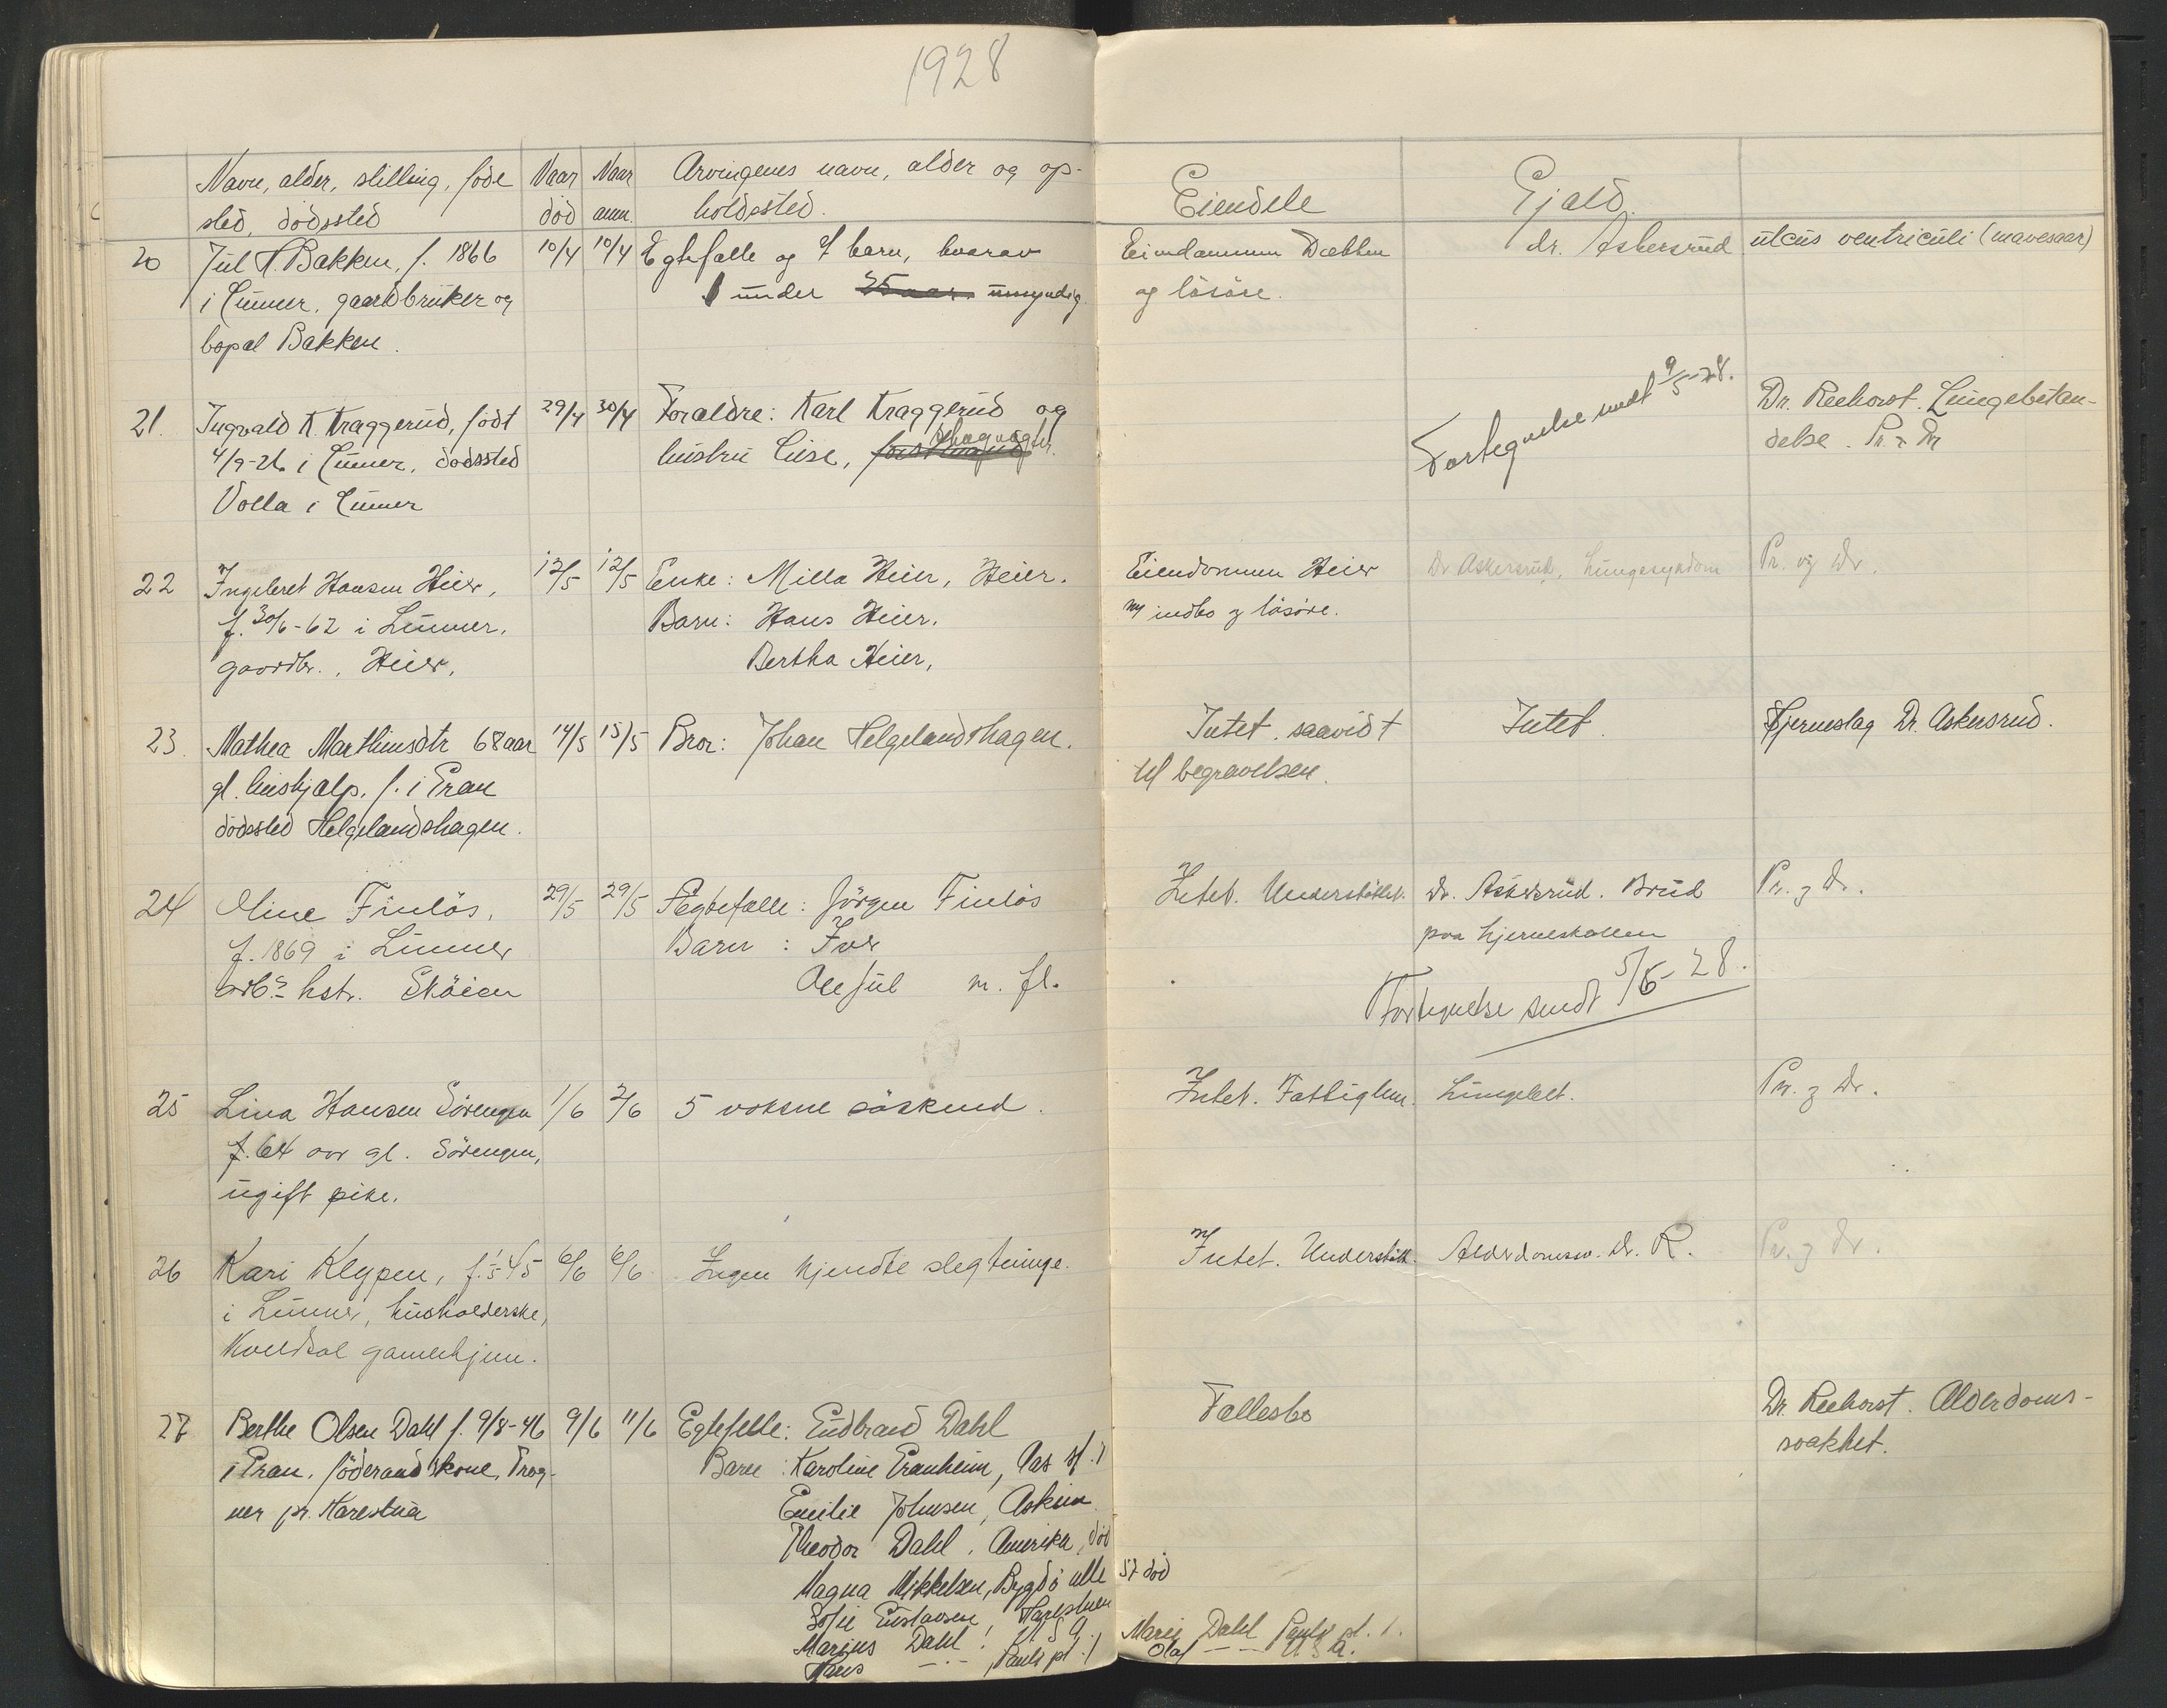 1928
Navn, alder, stilling, föde
sted, dödssted
Naar
död
Naar
anm.
Arvingenes navn, alder og op-
holdssted.
Eiendele
Gjæld.
20
Jul H. Bakken, f. 1866
i Lunner, gaardbruker og
bopæl Bakken.
10/4
10/4
Egtefælle og 7 barn, hvorav
1 under 25 aar. umyndig.
Eiendommen
og lösöre.
dr. Askersrud
ulcus ventriculi (mavesaar)
21.
Ingvald K. Kraggerud, födt
4/9-26 i Lunner, dödssted
Volla i Lunner
29/4
30/4
Forældre: Karl Kraggerud og
hustru Lise, skogvogter.
Fortegnelse sendt 9/5-28.
Dr. Reehorst. Lungebetæn-
delse. Pr. & Dr
22
Ingebret Hansen Heier,
f. 30/6-62 i Lunner,
gaardbr., Heier,
12/5
12/5
Enke: Milla Heier, Heier.
Barn: Hans Heier,
Bertha Heier,
Eiendommen Heier
m/ indbo & lösöre.
Dr Askersrud, Lungesykdom
Pr. og Dr.
23.
Mathea Marthinsdtr 68 aar
gl. hushjælp, f. i Gran
dödssted Helgelandshagen.
14/5
15/5
Bror: Johan Helgelandshagen.
Intet. saavidt
til begravelsen.
Intet.
Hjerneslag Dr. Askersrud.
24
Oline Finlös,
f. 1869 i Lunner
arb.s hstr. Sköien
29/5
29/5
Ægtefælle: Jörgen Finlös
Barn: Iver
Alf Jul m. fl.
Intet. Understöttet.
dr. Askersrud. Brud
paa hjerneskallen
Pr. & Dr.
Fortegnelse sendt 5/6-28.
25
Lina Hansen Sörengen
f. 64 aar gl. Sörengen,
ugift pike.
1/6
2/6
5 voksne söskend.
Intet. Fattiglem.
Lungebet.
Pr. & Dr.
26
Kari Klypen, f. 1/5 45
i Lunner, husholderske,
Kveldsol gamlehjem.
6/6
6/6
Ingen kjendte slegtninge.
Intet. Understött.
Alderdomssv. dr. R.
Pr. & Dr.
27
Berthe Olsen Dahl f. 9/8-46
i Gran, föderaadskone, Frog-
ner pr. Harestua
9/6
11/6
Egtefelle: Gudbrand Dahl
Barn: Karoline Granheim, Aas st. !
Emilie Johnsen, Askim
Theodor Dahl, Amerika, död
Magna Mikkelsen, Bygdö alle 57 död
Sofie Gustavsen ! Harestuen
Marius Dahl ! U S A !
Hans —·— , Pauls pl. !
Fællesbo
Marie Dahl Pauls pl. !.
Olaf — — U S A.
Dr. Reehorst. Alderdoms-
svakhet.